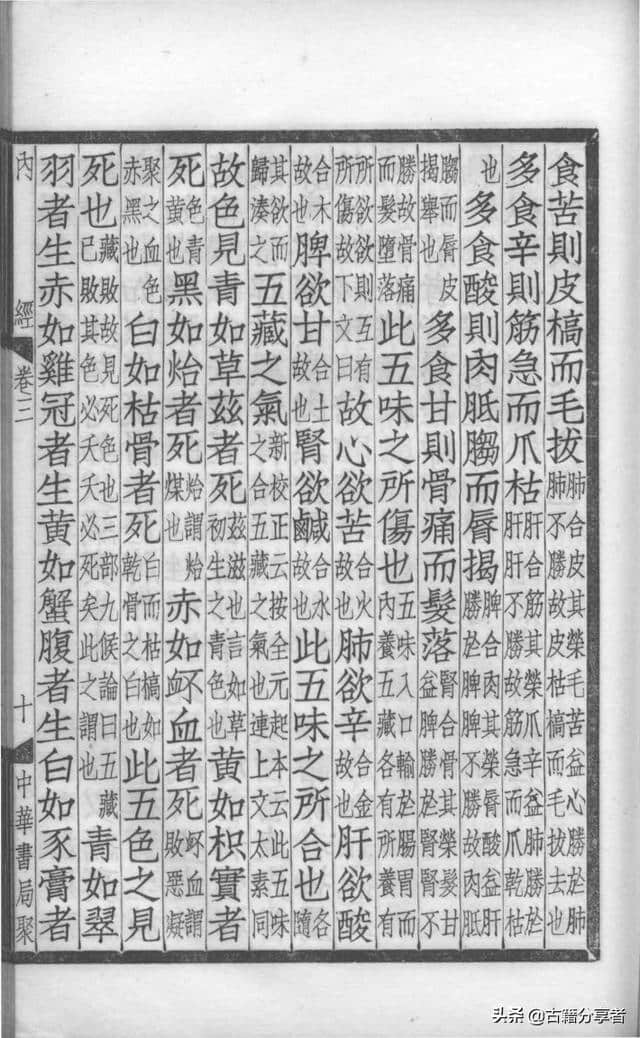 食苦則皮槁而毛拔肺合皮其榮毛苦益心勝於肺肺不勝故皮枯槁而毛拔去也
多食辛則筋急而爪枯肝合筋其榮爪辛益肺勝於肝肝不勝故筋急而爪乾枯
也多食酸則肉胝䐢而脣揭脾合肉其榮脣酸益肝勝於脾脾不勝故肉胝
䐢而脣皮揭舉也多食甘則骨痛而髮落腎合骨其榮髮甘益脾脾勝於腎腎不
勝故骨痛而髮墮落此五味之所傷也五味入口輸於腸胃而內養五藏各有所養有
所欲欲則互有所傷故下文曰故心欲苦合火故也肺欲辛合金故也肝欲酸
合木故也脾欲甘合土故也腎欲鹹合水故也此五味之所合也各隨
其欲而歸湊之五藏之氣新校正云按全元起本云此五味之合五藏之氣也連上文太素同
故色見青如草茲者死茲滋也言如草初生之青色也黃如枳實者
死色青黃也黑如炲者死炲謂炲煤也赤如衃血者死衃血謂敗惡凝
聚之血色赤黑也白如枯骨者死白而枯槁如乾骨之白也此五色之見
死也藏敗故見死色也三部九候論曰五藏已敗其色必夭夭必死矣此之謂也青如翠
羽者生赤如雞冠者生黃如蟹腹者生白如豕膏者
內經 卷三 十 中華書局聚
头条 @古籍分享者